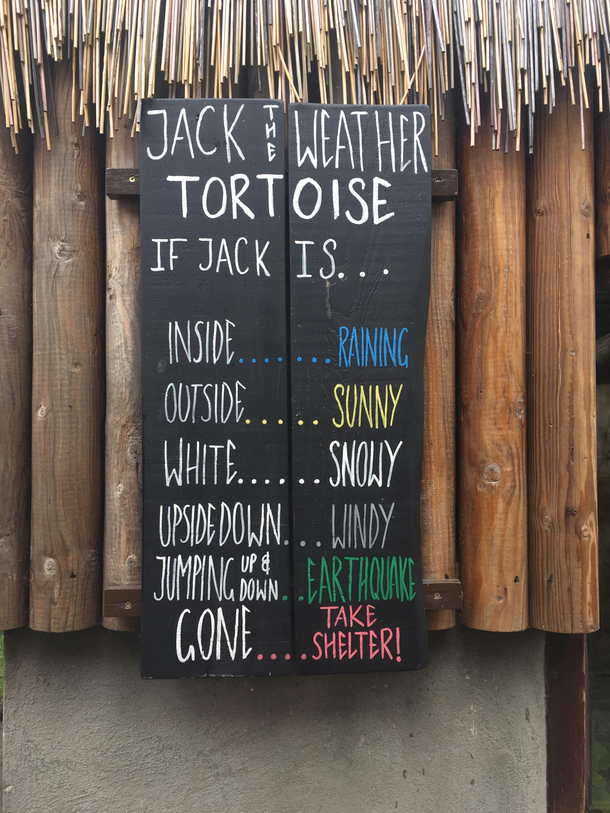 JACK THE WEATHER
TORTOISE
IF JACK IS...
INSIDE.......RAINING
OUTSIDE......SUNNY
WHITE......SNOWY
UPSIDE DOWN...WINDY
JUMPING UP & DOWN..EARTHQUAKE
GONE....TAKE SHELTER!